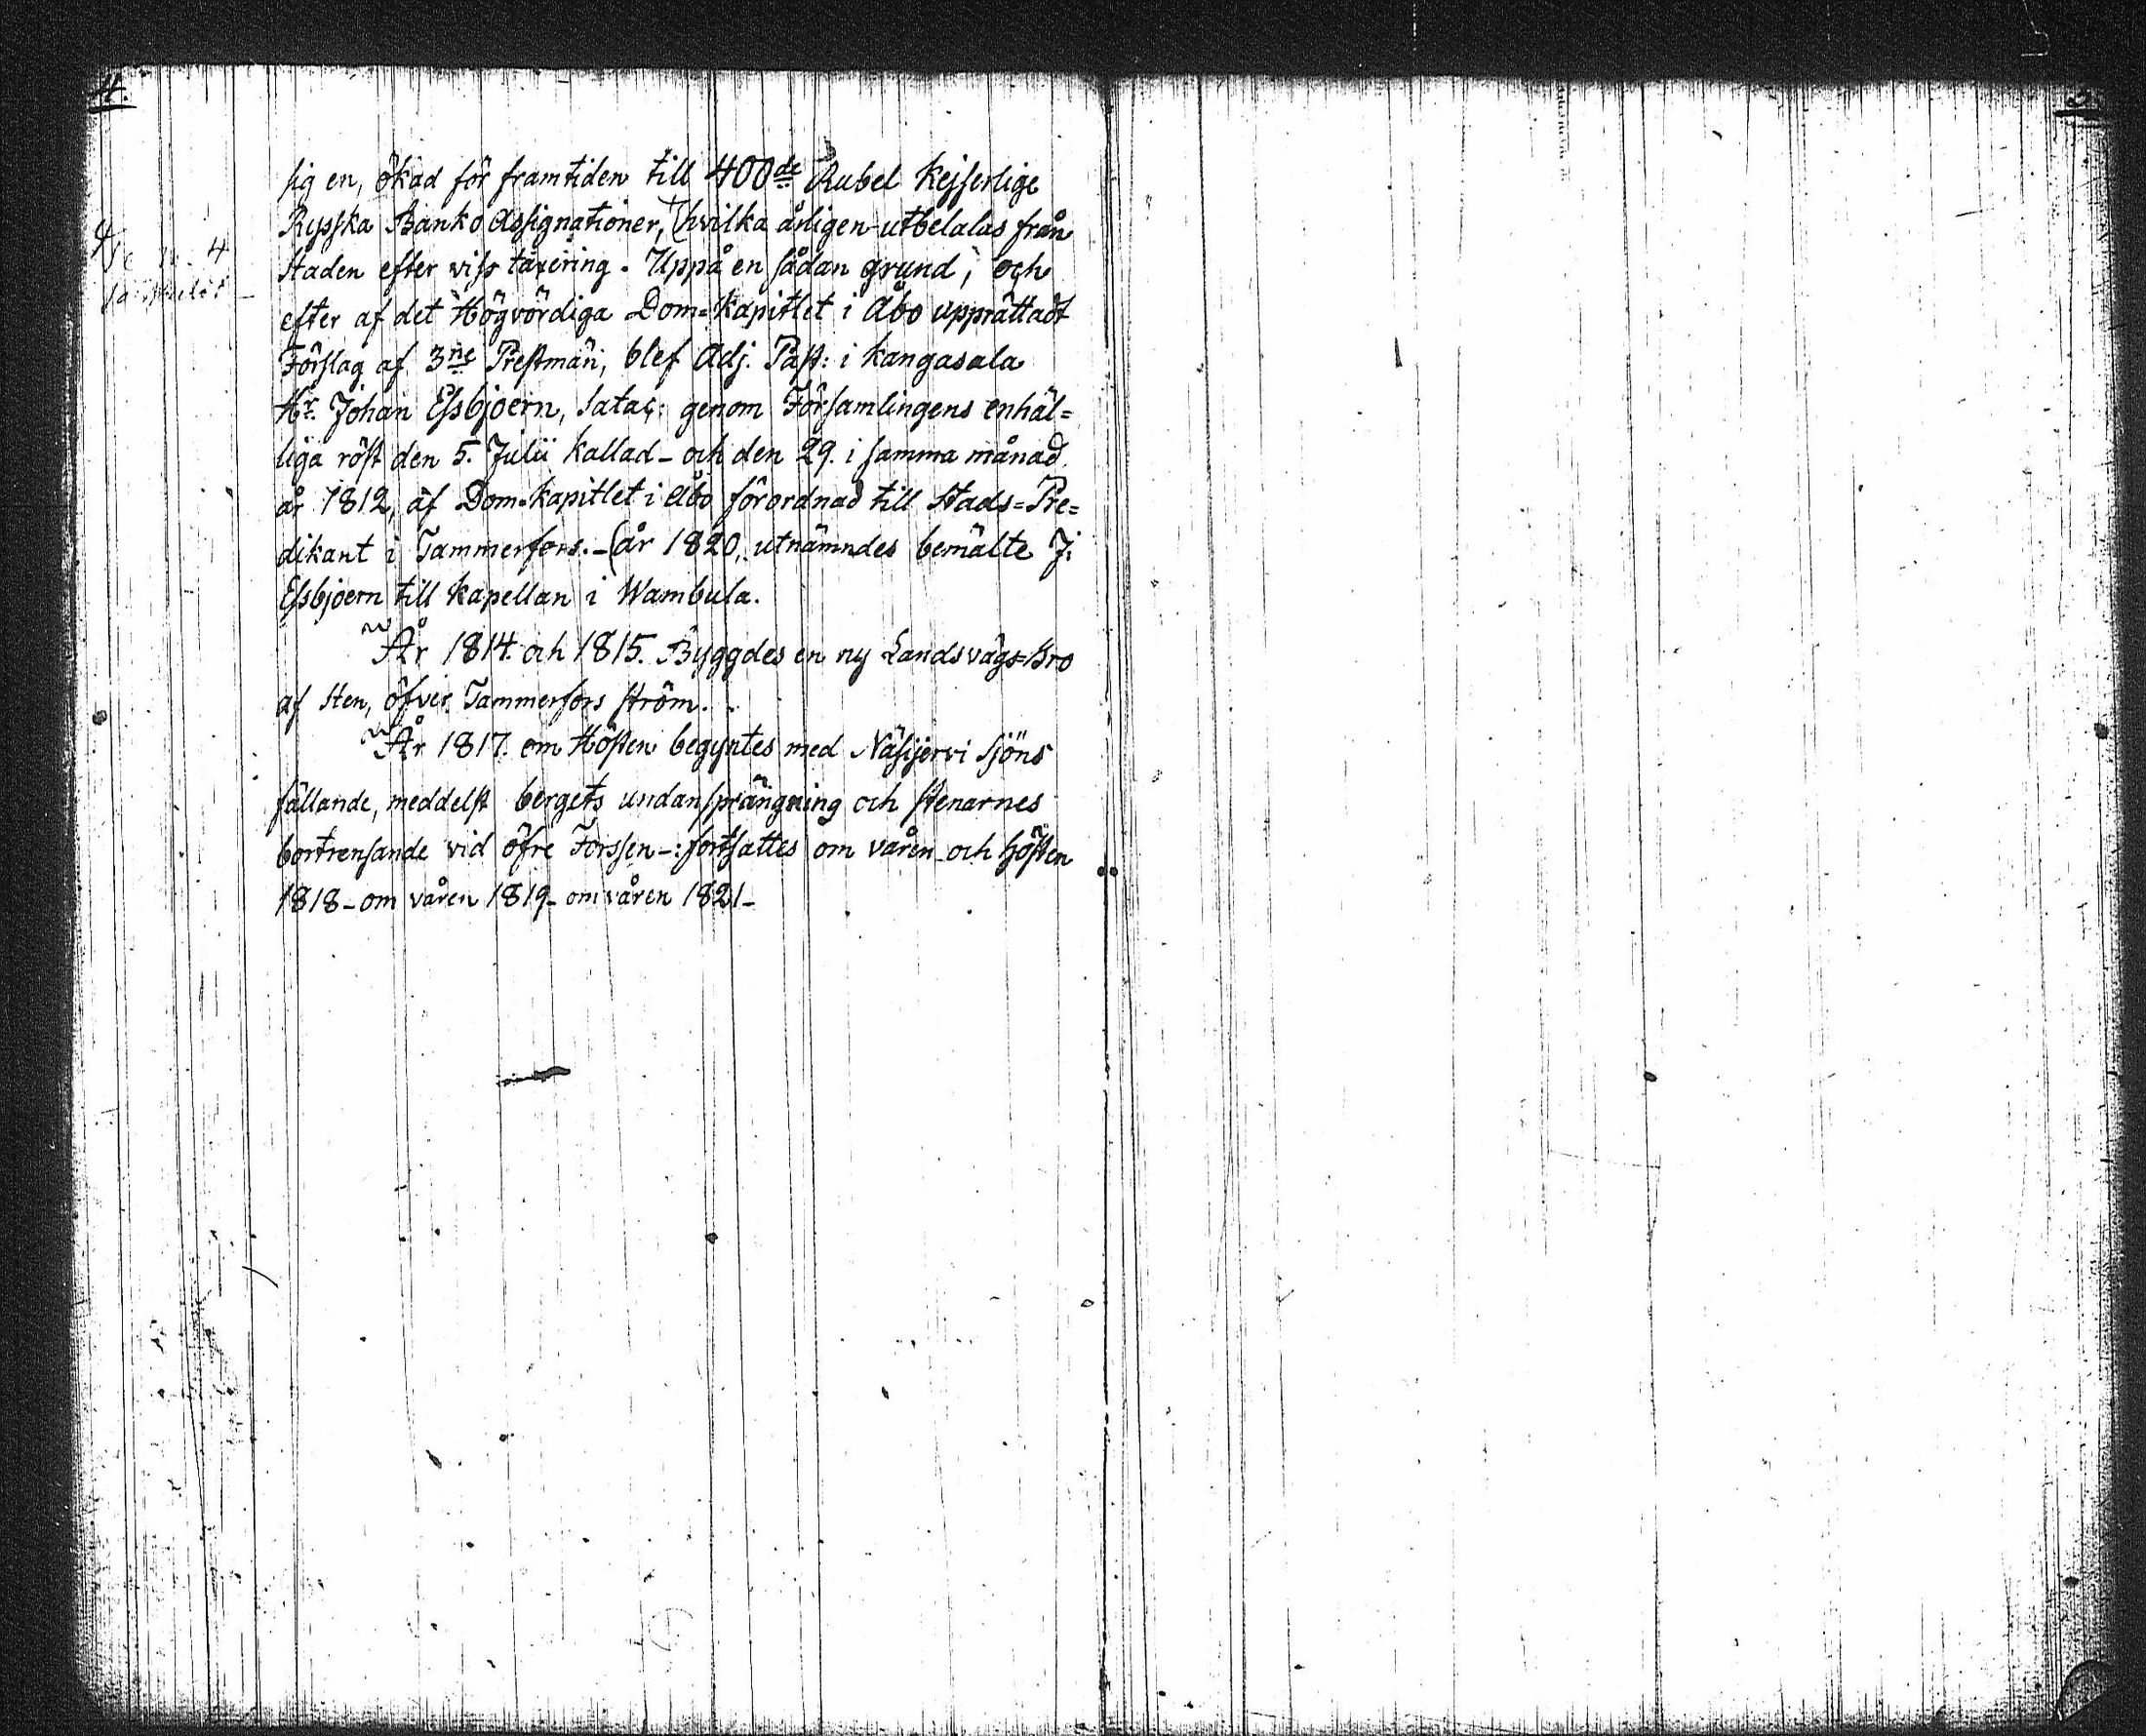 4.
sig en, ökad för framtiden till 400de Rubel Kejserlige
Rysska Banko Assignationer, (hvilka årligen utbetalas från
staden efter viss taxering. Uppå en sådan grund, och
efter af det Högvördiga Dom=Kapitlet i Åbo upprättadt
Förslag af 3ne Prestmän, blef Adj. Past: i Kangasala
Hr. Johan Essbjoern, Satac: genom Församlingens enhäl=
liga röst den 5. Julii kallad – och den 29. i samma månad
år 1812, af Dom-kapitlet i Åbo förordnad till Stads=Pre=
dikant i Tammerfors. – (år 1820, utnämndes bemälte J:
Essbjoern till kapellan i Wambula.
År 1814. och 1815. Byggdes en ny Landsvägs=Bro
af Sten, öfver Tammerfors ström.
År 1817. om Hösten begyntes med Näsijervi Sjöns
fällande, meddelst bergets undansprängning och stenarnes
bortrensande vid öfre Forssen –: fortsattes om våren och Hösten
1818 – om våren 1819 – om våren 1821 –